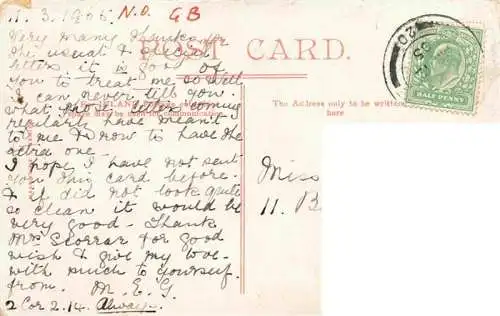 11.3.1905 N.O GB
Very many thanks for
the usual & special
letters it is good of
you to treat me so well
I can never tell you
what the letters coming
regularly have meant
to me & now to have the
extra one -
I hope I have not sent
you this card before.
& if did not look quite
so clean it would be
very good - Thank
Mr. for good
wish & give my love -
with much to yourself.
from. M. E. G.
2 Cor 2.14. Always -
POST CARD.
The Address only to be written
here
HALF PENNY
Miss
11. B